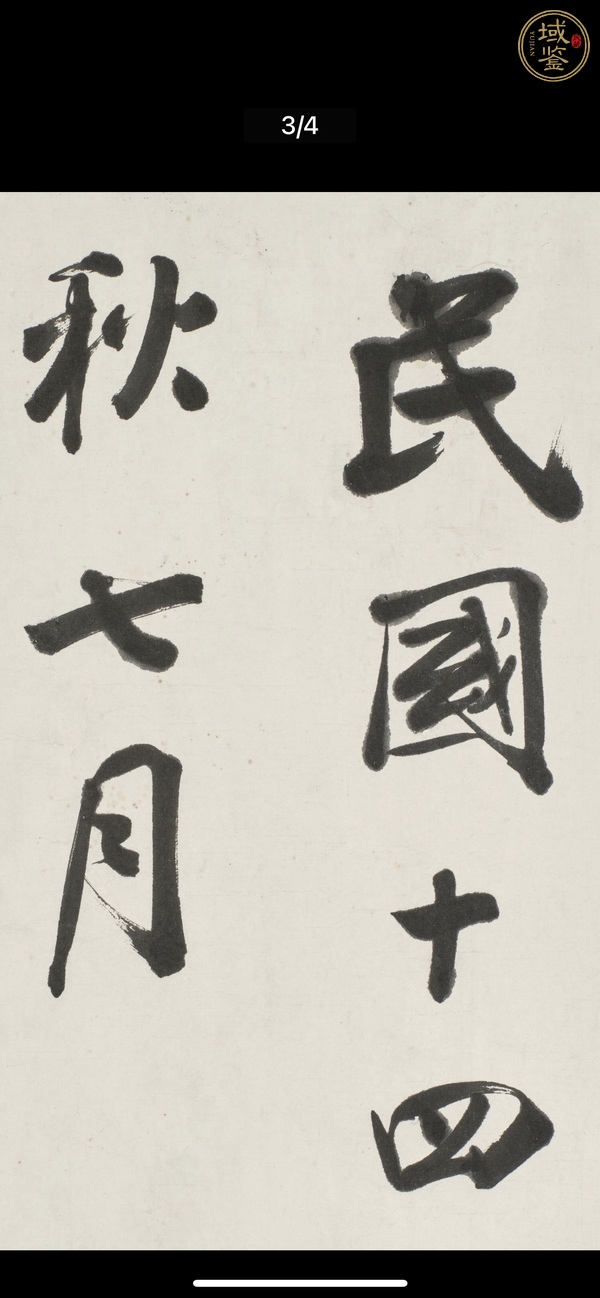 域鉴
YUJIAN
3/4
民國十四
秋七月